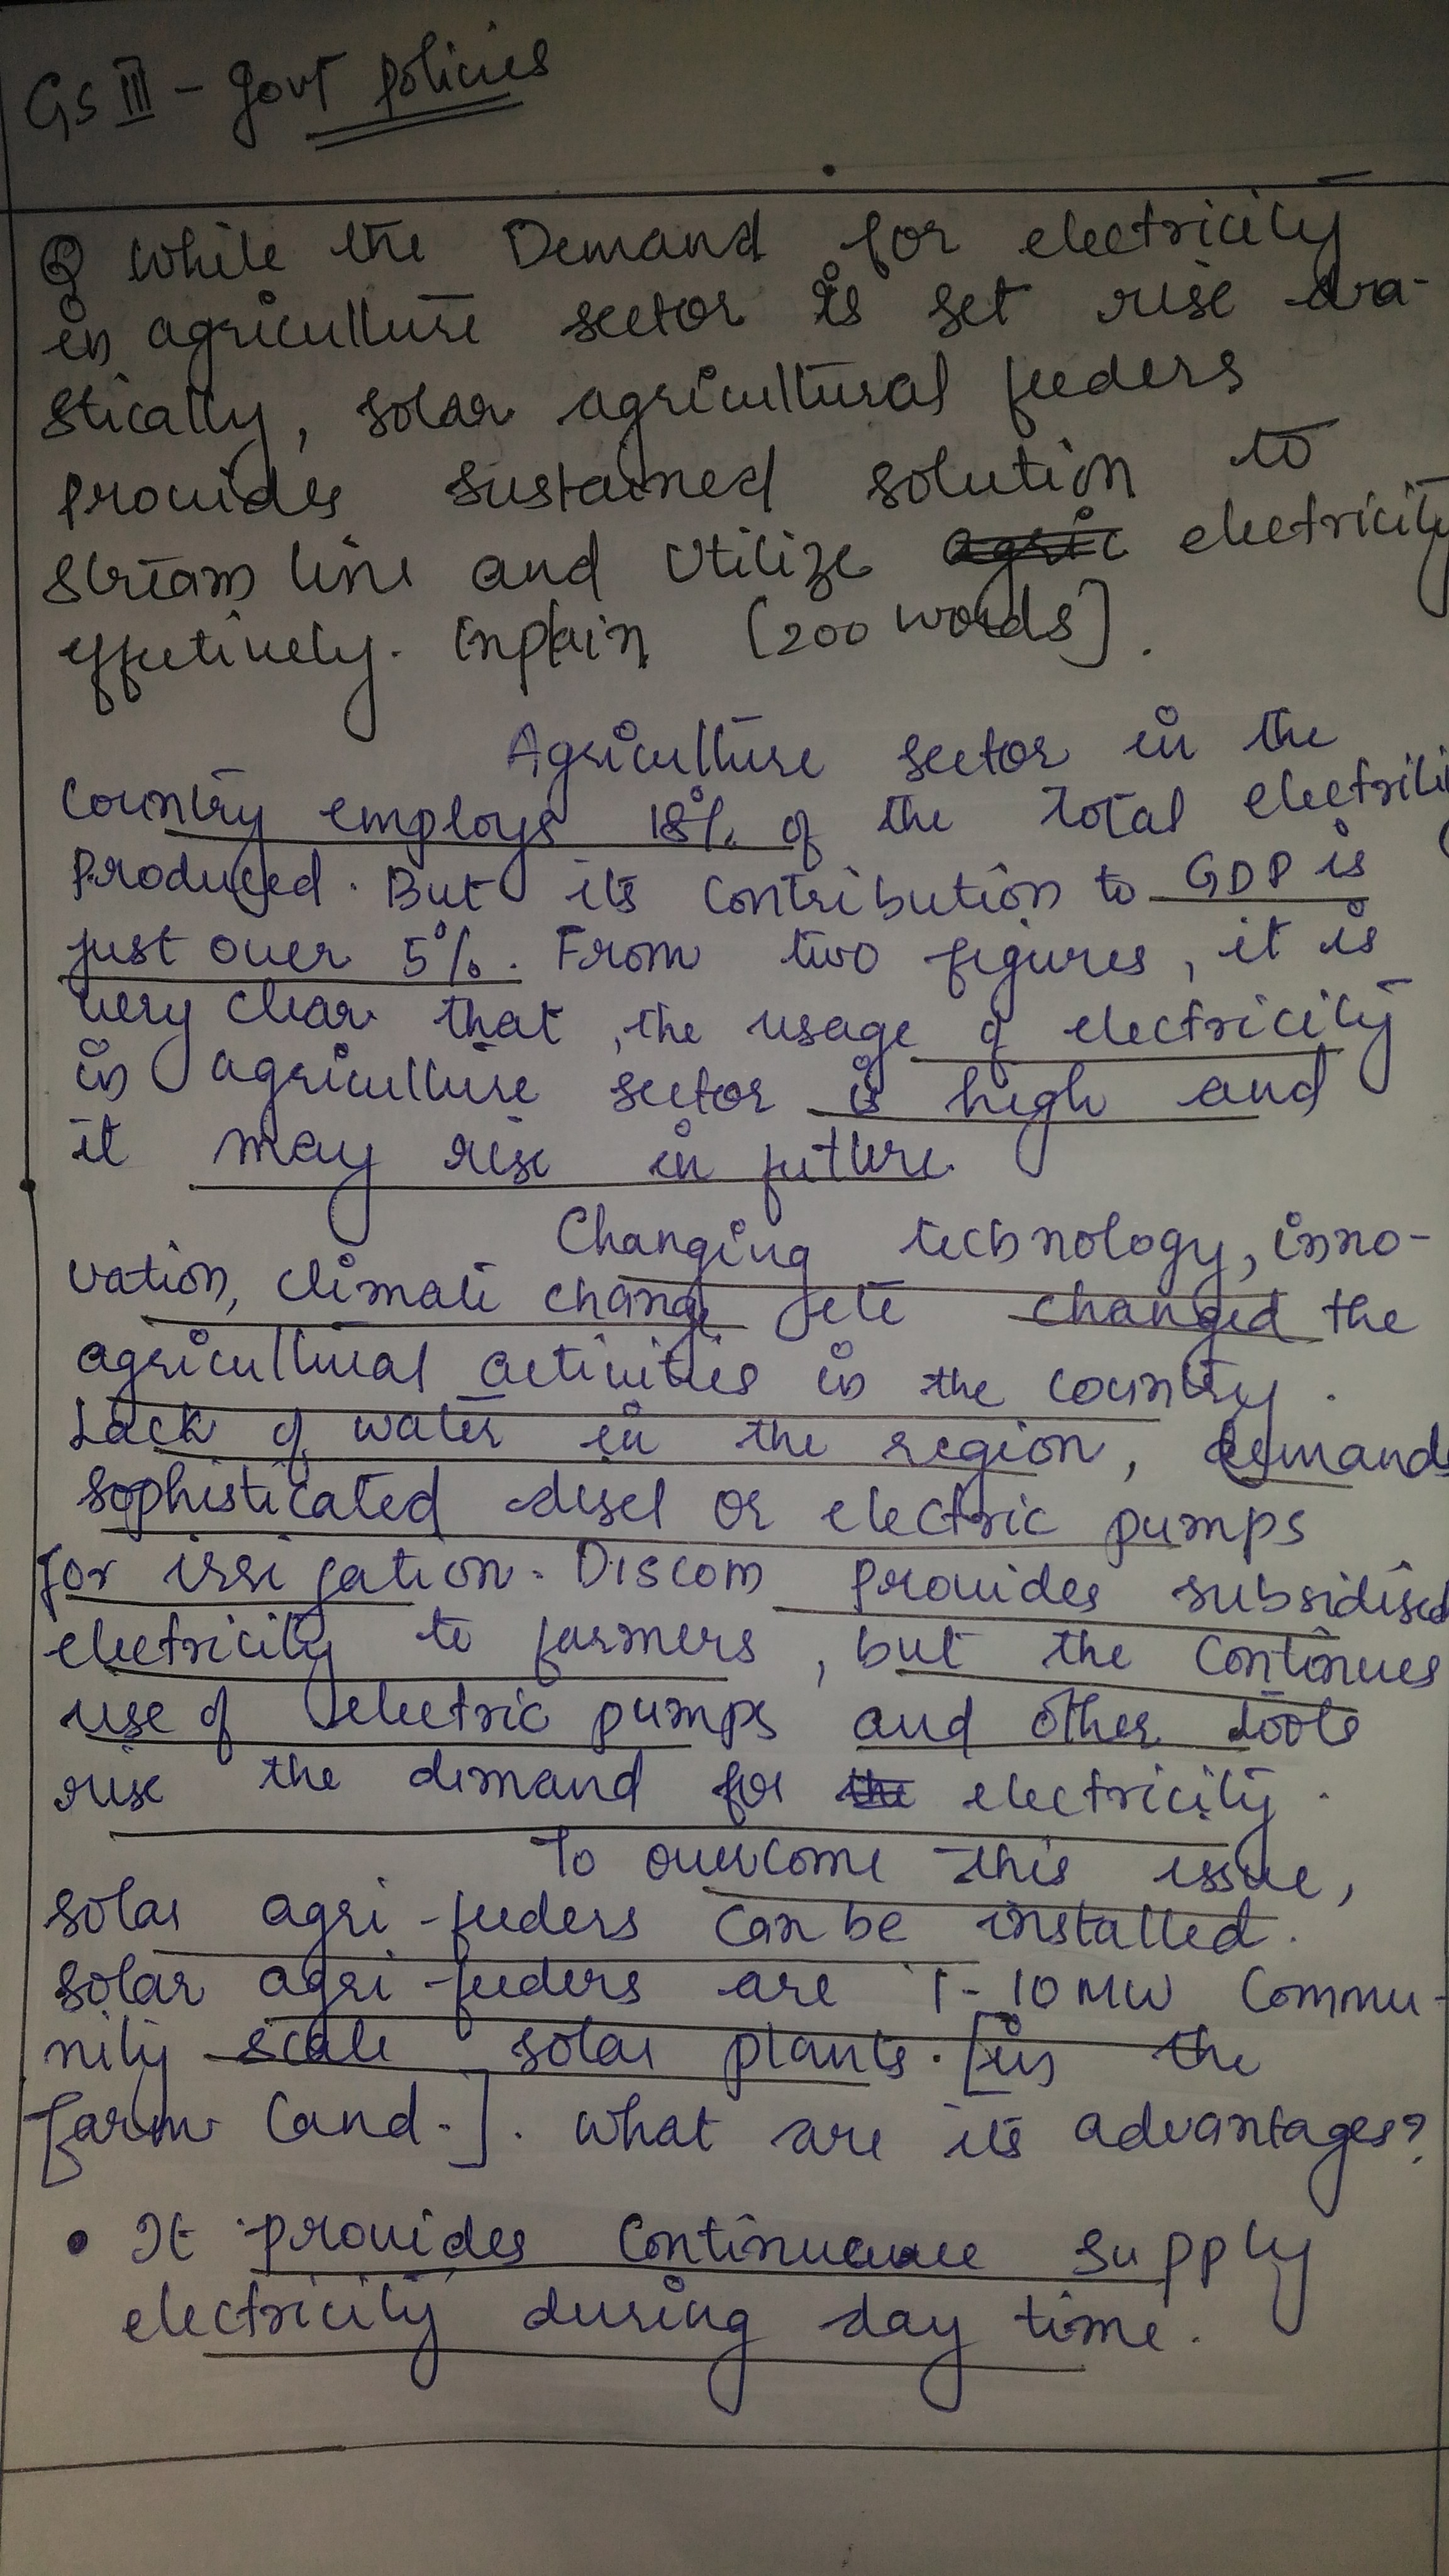 GS III - Govt policies
Q While the Demand for electricity
in agriculture sector is set rise dra-
stically, solar agricultural feeders
provides sustained solution to
stream line and utilize electricity
effectively. Explain [200 words].
Agriculture sector in the
country employs 18% of the total electrici
produced. But its contribution to GDP is
just over 5%. From two figures, it is
very clear that, the usage of electricity
in agriculture sector is high and
it may rise in future.
Changing technology, inno-
vation, climate change etc changed the
agricultural activities in the country.
Lack of water in the region, demands
sophisticated disel or electric pumps
for irrigation. DISCOM provides subsidised
electricity to farmers, but the continues
use of electric pumps and other tools
rise the demand for the electricity.
To overcome this issue,
solar agri-feeders can be installed.
solar agri-feeders are 1-10MW commu-
nity scale solar plants. [in the
farm land.]. What are its advantages?
• It provides supply
electricity during day time.